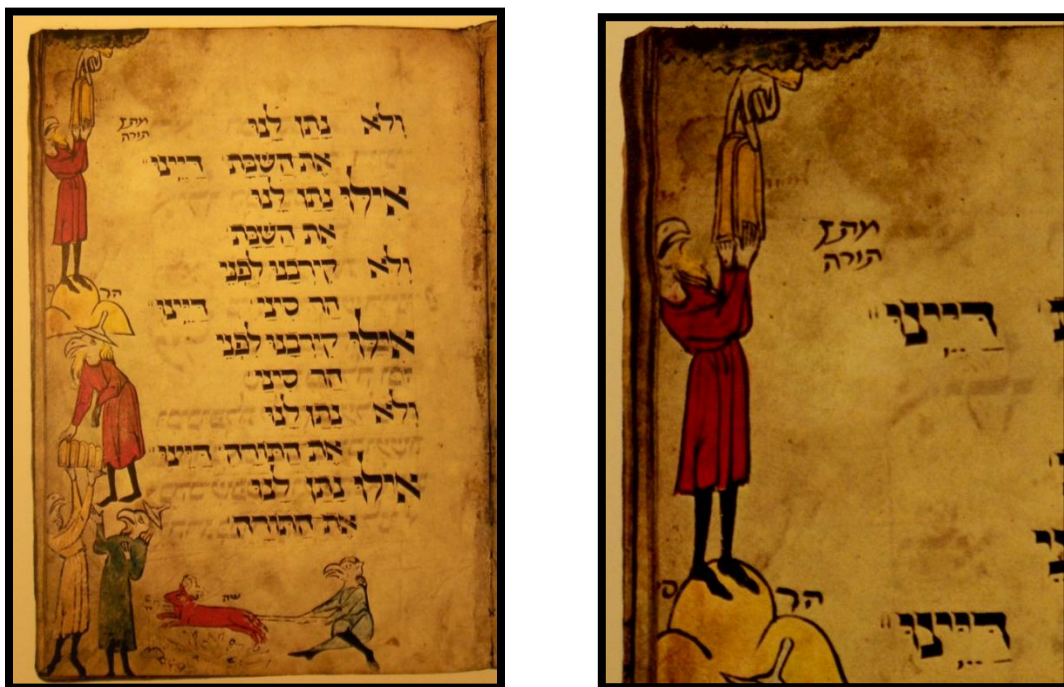 מתן
תורה
ולא נתן לנו
את השבת דיינו
אילו נתן לנו
את השבת
ולא קירבנו לפני
הר
הר סיני דיינו
אילו קירבנו לפני
הר סיני
ולא נתן לנו
את התורה דיינו
אילו נתן לנו
את התורה
שה
מתן
תורה
דיינו
הר
דיינו